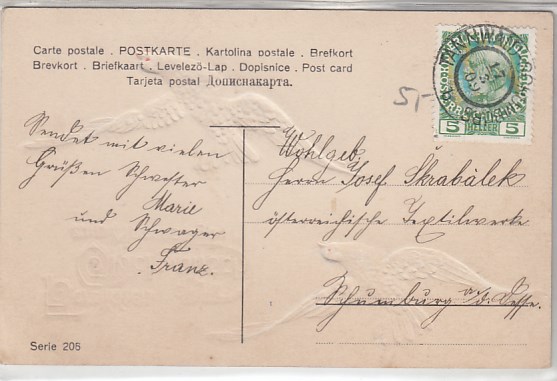 Carte postale . POSTKARTE . Kartolina postale . Brefkort
Brevkort . Briefkaart . Levelező-Lap . Dopisnice . Post card
Tarjeta postal Дописнакарта.
5 5
HELLER
5/-
Sendet mit vielen
Grüßen Schwester
Marie
und Schwager
Franz.
Wohlgeb.
Herrn Josef Skrabálek
österreichische Textilwerke
Schumburg a/d. Desse.
Serie 205